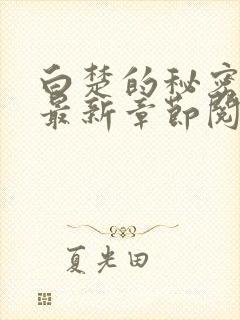 白楚的秘密
最新章节阅
夏光田